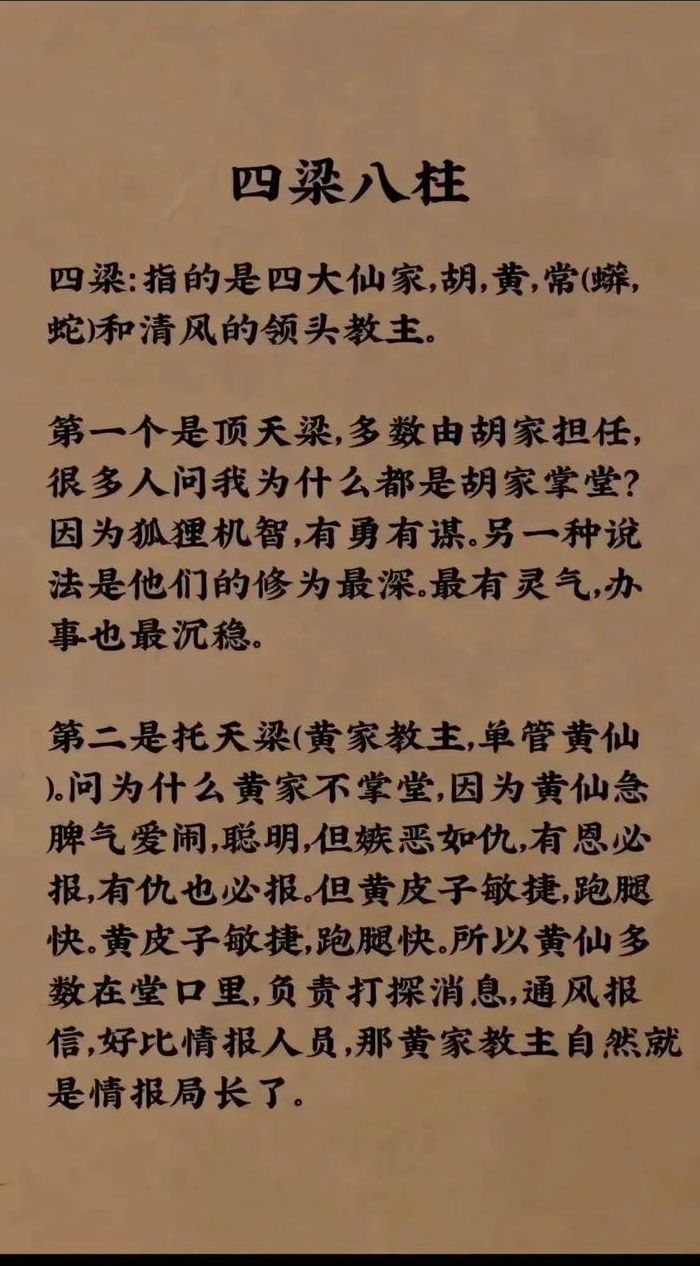 四梁八柱
四梁:指的是四大仙家,胡,黄,常(蟒,
蛇)和清风的领头教主。
第一个是顶天梁,多数由胡家担任,
很多人问我为什么都是胡家掌堂?
因为狐狸机智,有勇有谋。另一种说
法是他们的修为最深。最有灵气,办
事也最沉稳。
第二是托天梁(黄家教主,单管黄仙
)。问为什么黄家不掌堂,因为黄仙急
脾气爱闹,聪明,但嫉恶如仇,有恩必
报,有仇也必报。但黄皮子敏捷,跑腿
快。黄皮子敏捷,跑腿快。所以黄仙多
数在堂口里,负责打探消息,通风报
信,好比情报人员,那黄家教主自然就
是情报局长了。